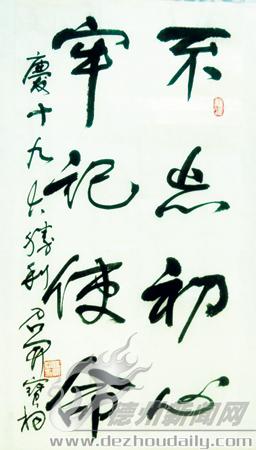 不忘初心
牢记使命
慶十九大勝利
德州新闻网
www.dezhoudaily.com